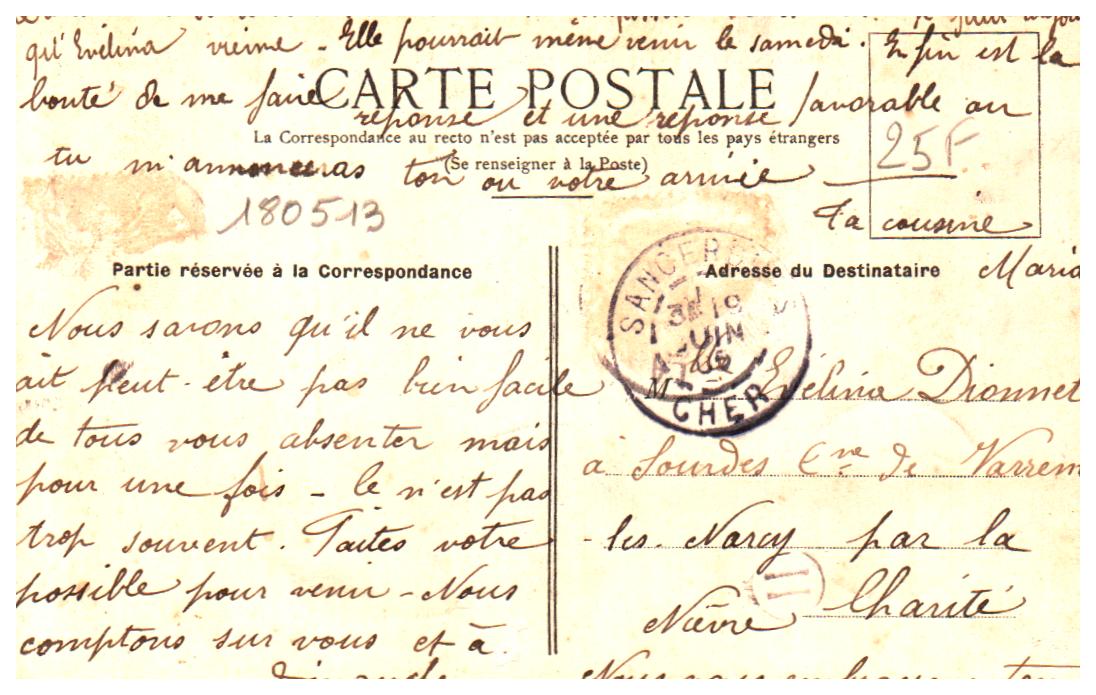 qu'Evelina vienne - Elle pourrait même venir le samedi. Enfin est la
bonté de me faire réponse et une réponse favorable ou
tu m'annonceras ton ou votre arrivée
Ta cousine
Maria
CARTE POSTALE
La Correspondance au recto n'est pas acceptée par tous les pays étrangers
(Se renseigner à la Poste)
25F
180513
Partie réservée à la Correspondance
Nous savons qu'il ne vous
ait peut-être pas bien facile
de tous vous absenter mais
pour une fois - Ce n'est pas
trop souvent. Faites votre
possible pour venir - Nous
comptons sur vous et à
dimanche
Adresse du Destinataire
M lle Evélina Dionnet
à Sourdes Cne de Varren
-les-Narcy par la
Charité
Nièvre
Nous vous
SANCER
13 E 19
JUIN
CHER